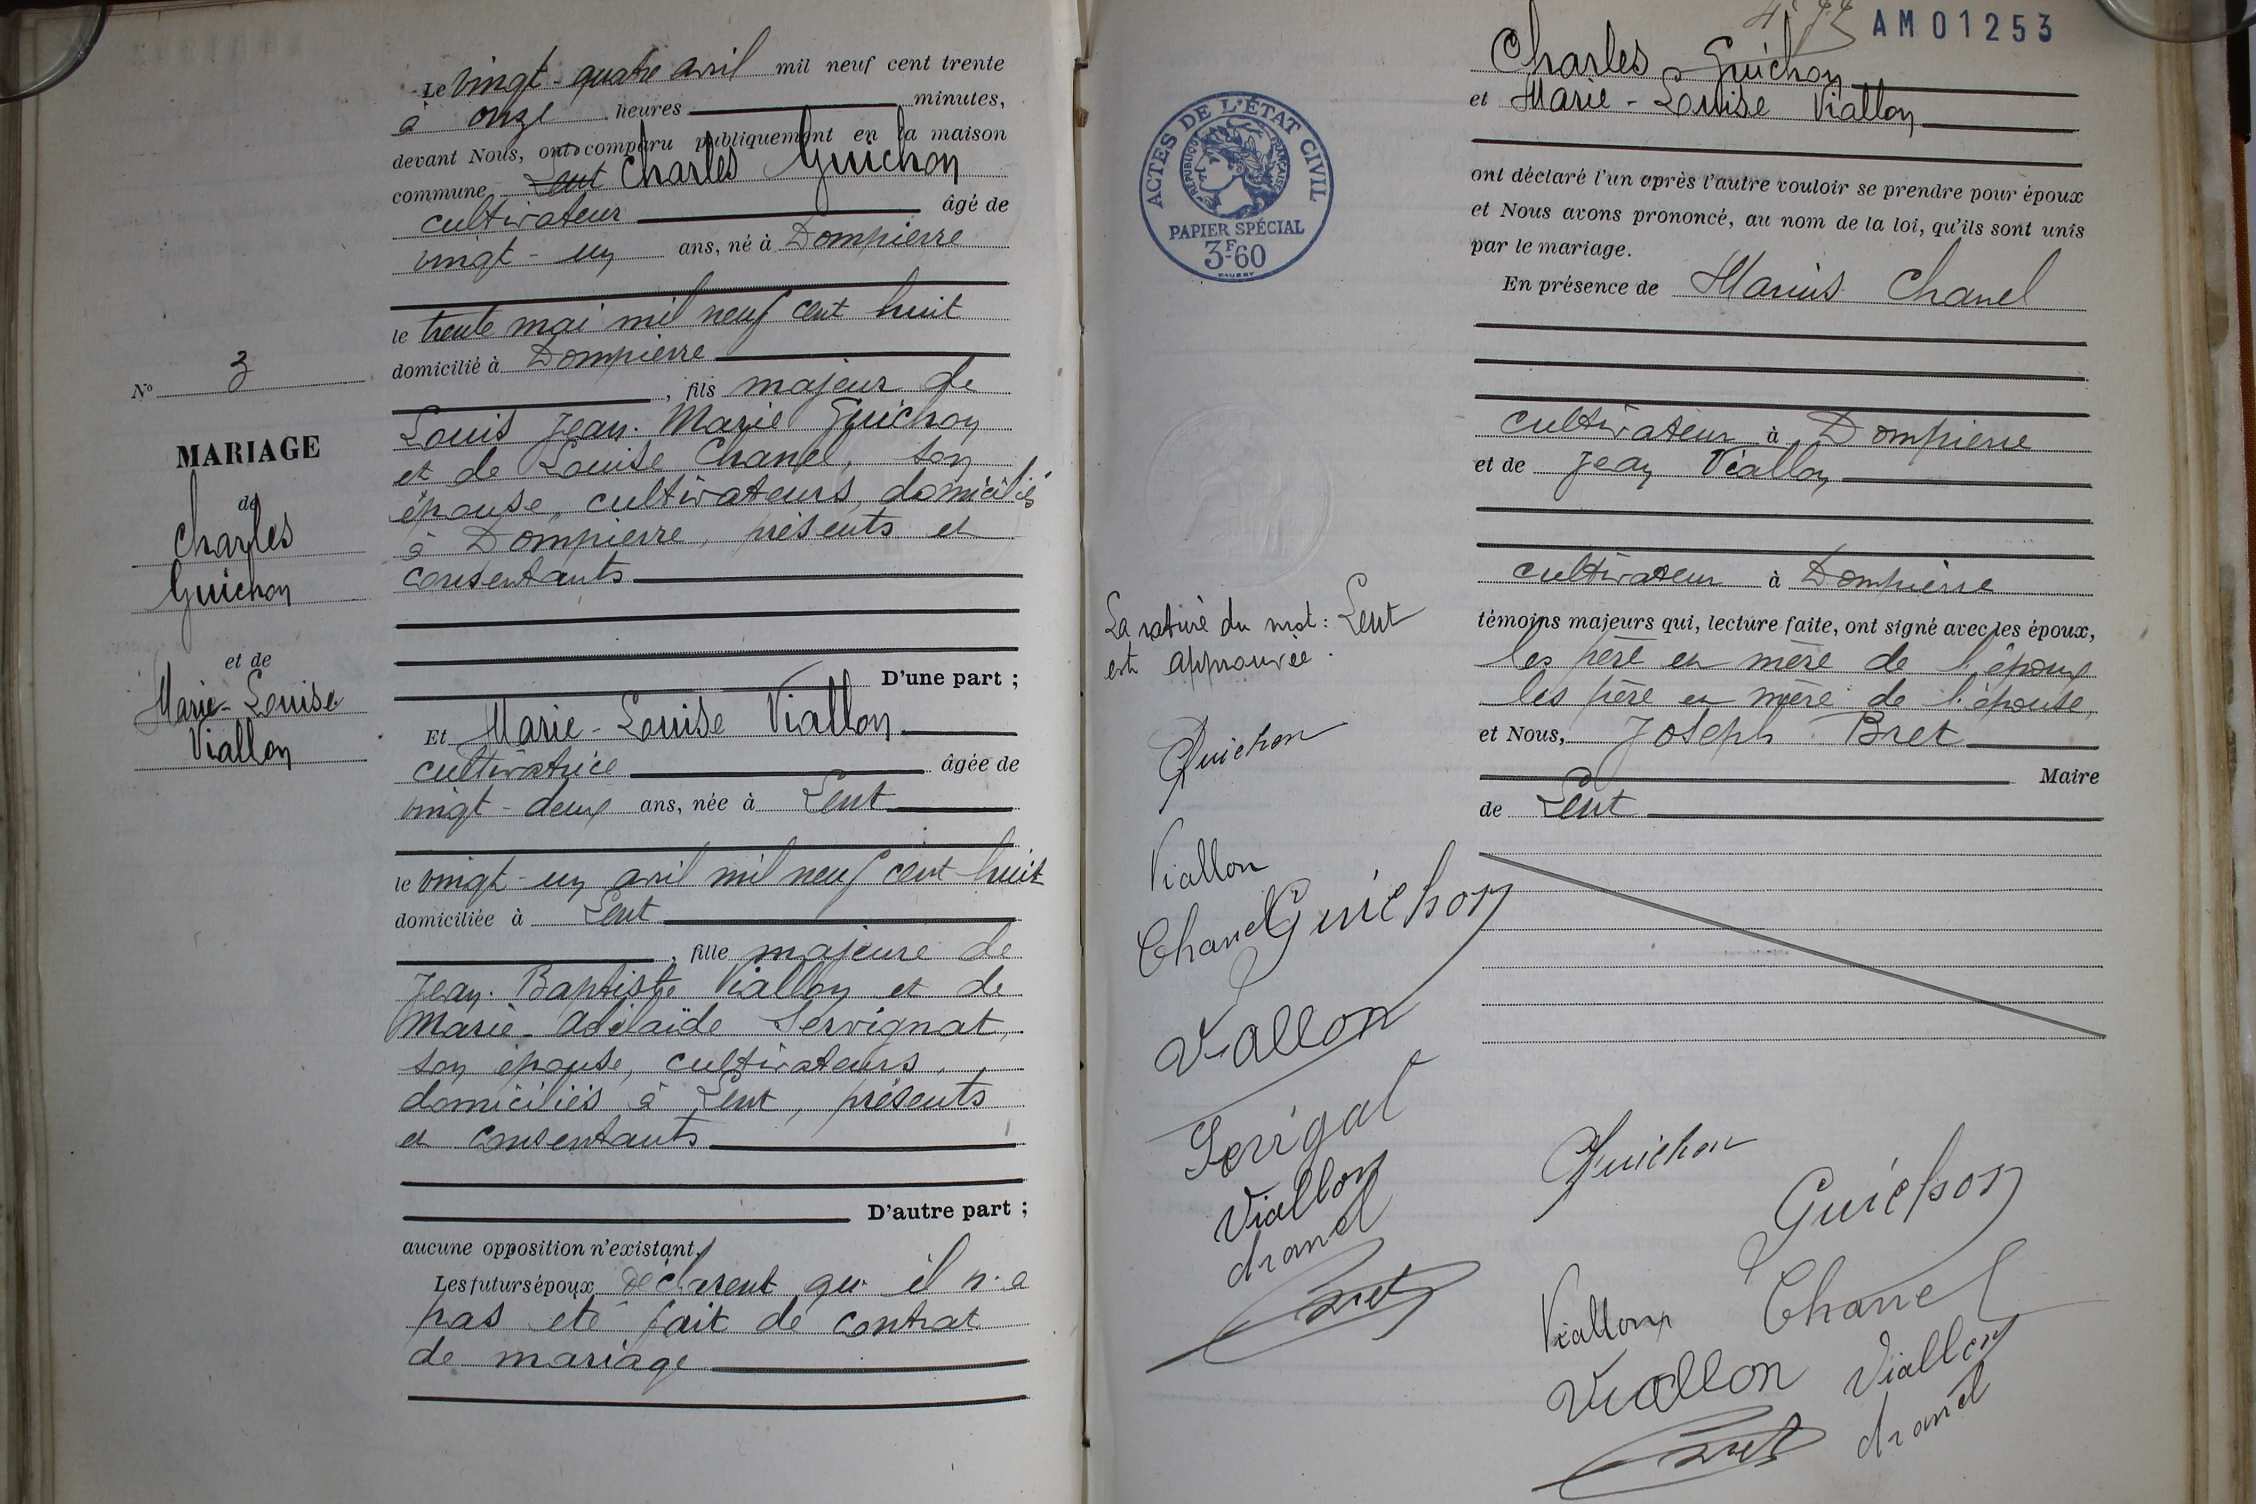 Le vingt-quatre avril mil neuf cent trente
à onze heures minutes,
devant Nous, ont comparu publiquement en la maison
commune Lent Charles Guichon
cultivateur âgé de
vingt-un ans, né à Dompierre
le trente mai mil neuf cent huit
domicilié à Dompierre
, fils majeur de
Louis Jean-Marie Guichon
et de Louise Chanel, son
épouse, cultivateurs, domiciliés
à Dompierre, présents et
consentants
D'une part ;
Et Marie-Louise Viallon
cultivatrice âgée de
vingt-deux ans, née à Lent
le vingt-un avril mil neuf cent huit
domiciliée à Lent
, fille majeure de
Jean-Baptiste Viallon et de
Marie-Adélaïde Servignat,
son épouse, cultivateurs,
domiciliés à Lent, présents
et consentants
D'autre part ;
aucune opposition n'existant,
Les futurs époux déclarent qu'il n'a
pas été fait de contrat
de mariage
No 3
MARIAGE
de
Charles
Guichon
et de
Marie-Louise
Viallon
AM01253
Charles Guichon
et Marie-Louise Viallon
ont déclaré l'un après l'autre vouloir se prendre pour époux
et Nous avons prononcé, au nom de la loi, qu'ils sont unis
par le mariage.
En présence de Marius Chanel
cultivateur à Dompierre
et de Jean Viallon
cultivateur à Dompierre
témoins majeurs qui, lecture faite, ont signé avec les époux,
les père et mère de l'époux
les père et mère de l'épouse,
et Nous, Joseph Bret
Maire
de Lent
ACTES DE L'ÉTAT CIVIL
RÉPUBLIQUE FRANÇAISE
PAPIER SPÉCIAL
3F-60
La rature du mot : Lent
est approuvée.
Guichon
Viallon
Chanel Guichon
Viallon
Viallon
chanel
Bret
Guichon
Guichon
Viallon Chanel
Viallon Viallon
chanel
Bret